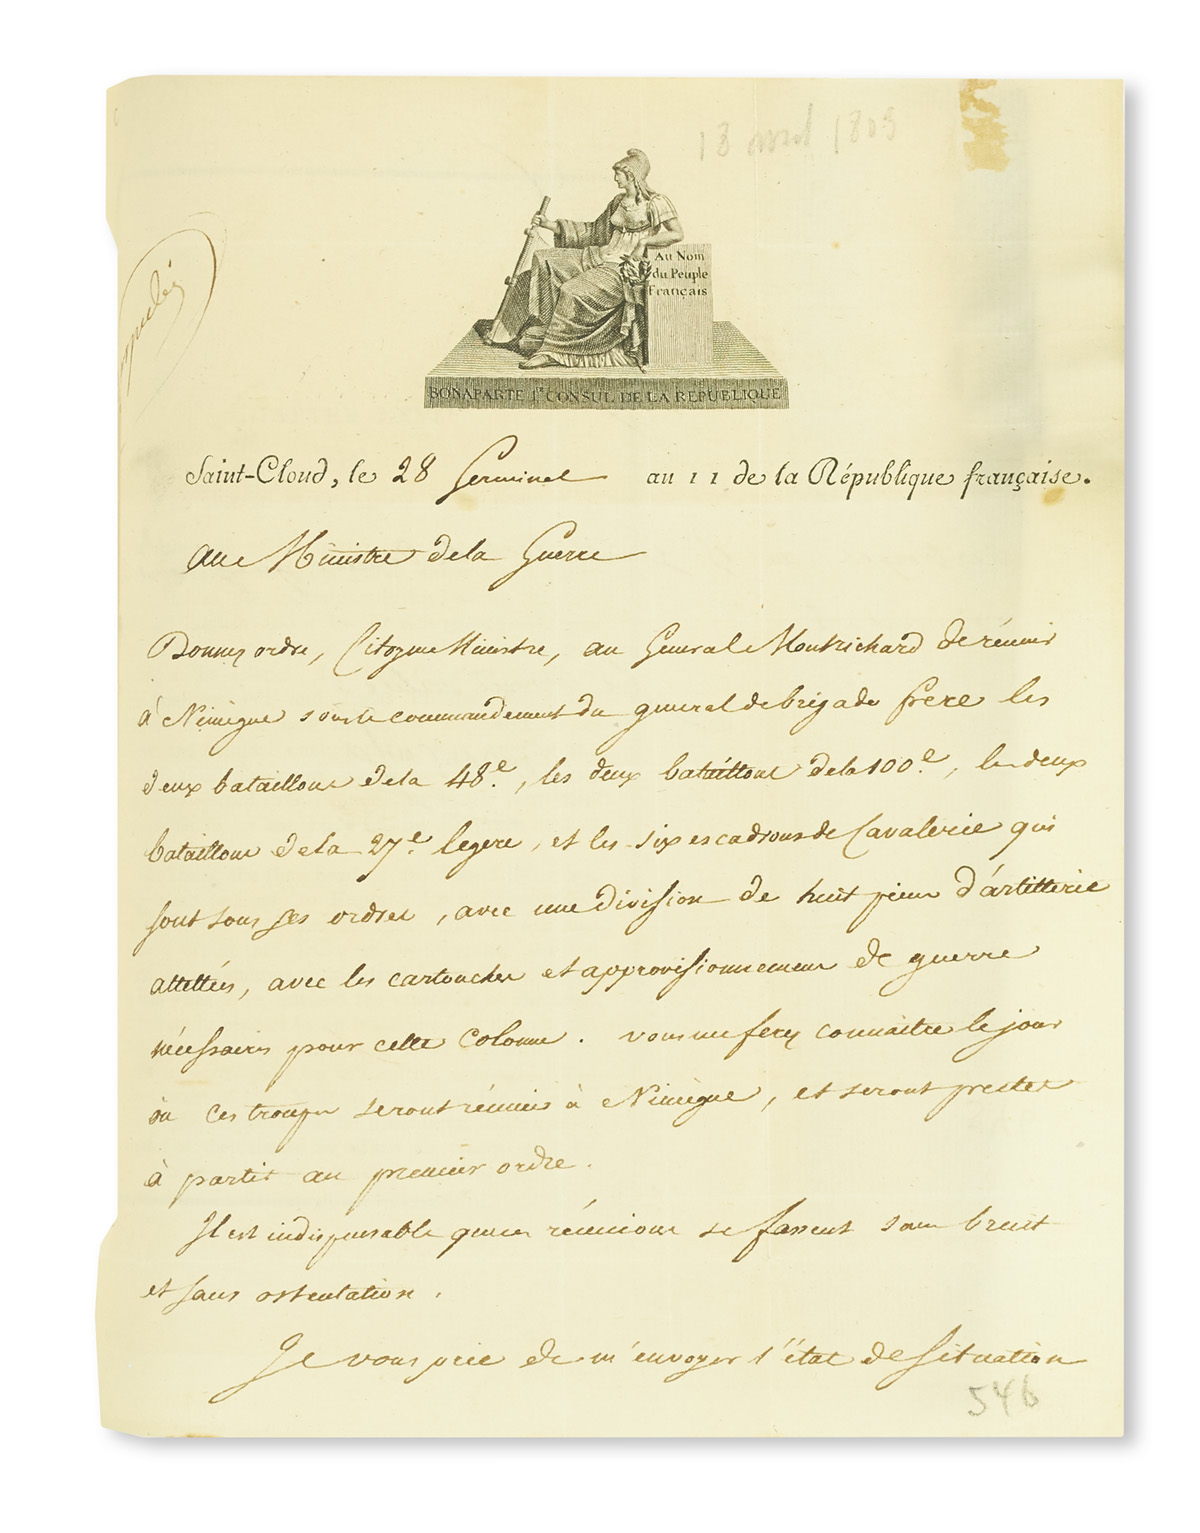 18 avril 1803
Au Nom
du Peuple
Français
BONAPARTE 1er CONSUL DE LA REPUBLIQUE
Saint-Cloud, le 28 Germinal au 11 de la République française.
Au Ministre de la Guerre
Donnez ordre, Citoyen Ministre, au Général Montrichard de réunir
à Nimègue sous le commandement du général de brigade frere les
deux bataillons de la 48e., les deux bataillons de la 100e., les deux
bataillons de la 27e. legere, et les six escadrons de Cavalerie qui
sont sous ses ordres, avec une division de huit pieces d'artillerie
attelées, avec les cartouches et approvisionnemens de guerre
nécessaires pour cette Colonne. vous me ferez connaitre le jour
où ces troupes seront réunies à Nimègue, et seront pretes
à partir au premier ordre.
Il est indispensable que ces réunions se fassent sans bruit
et sans ostentation.
Je vous prie de m'envoyer l'état de situation
546